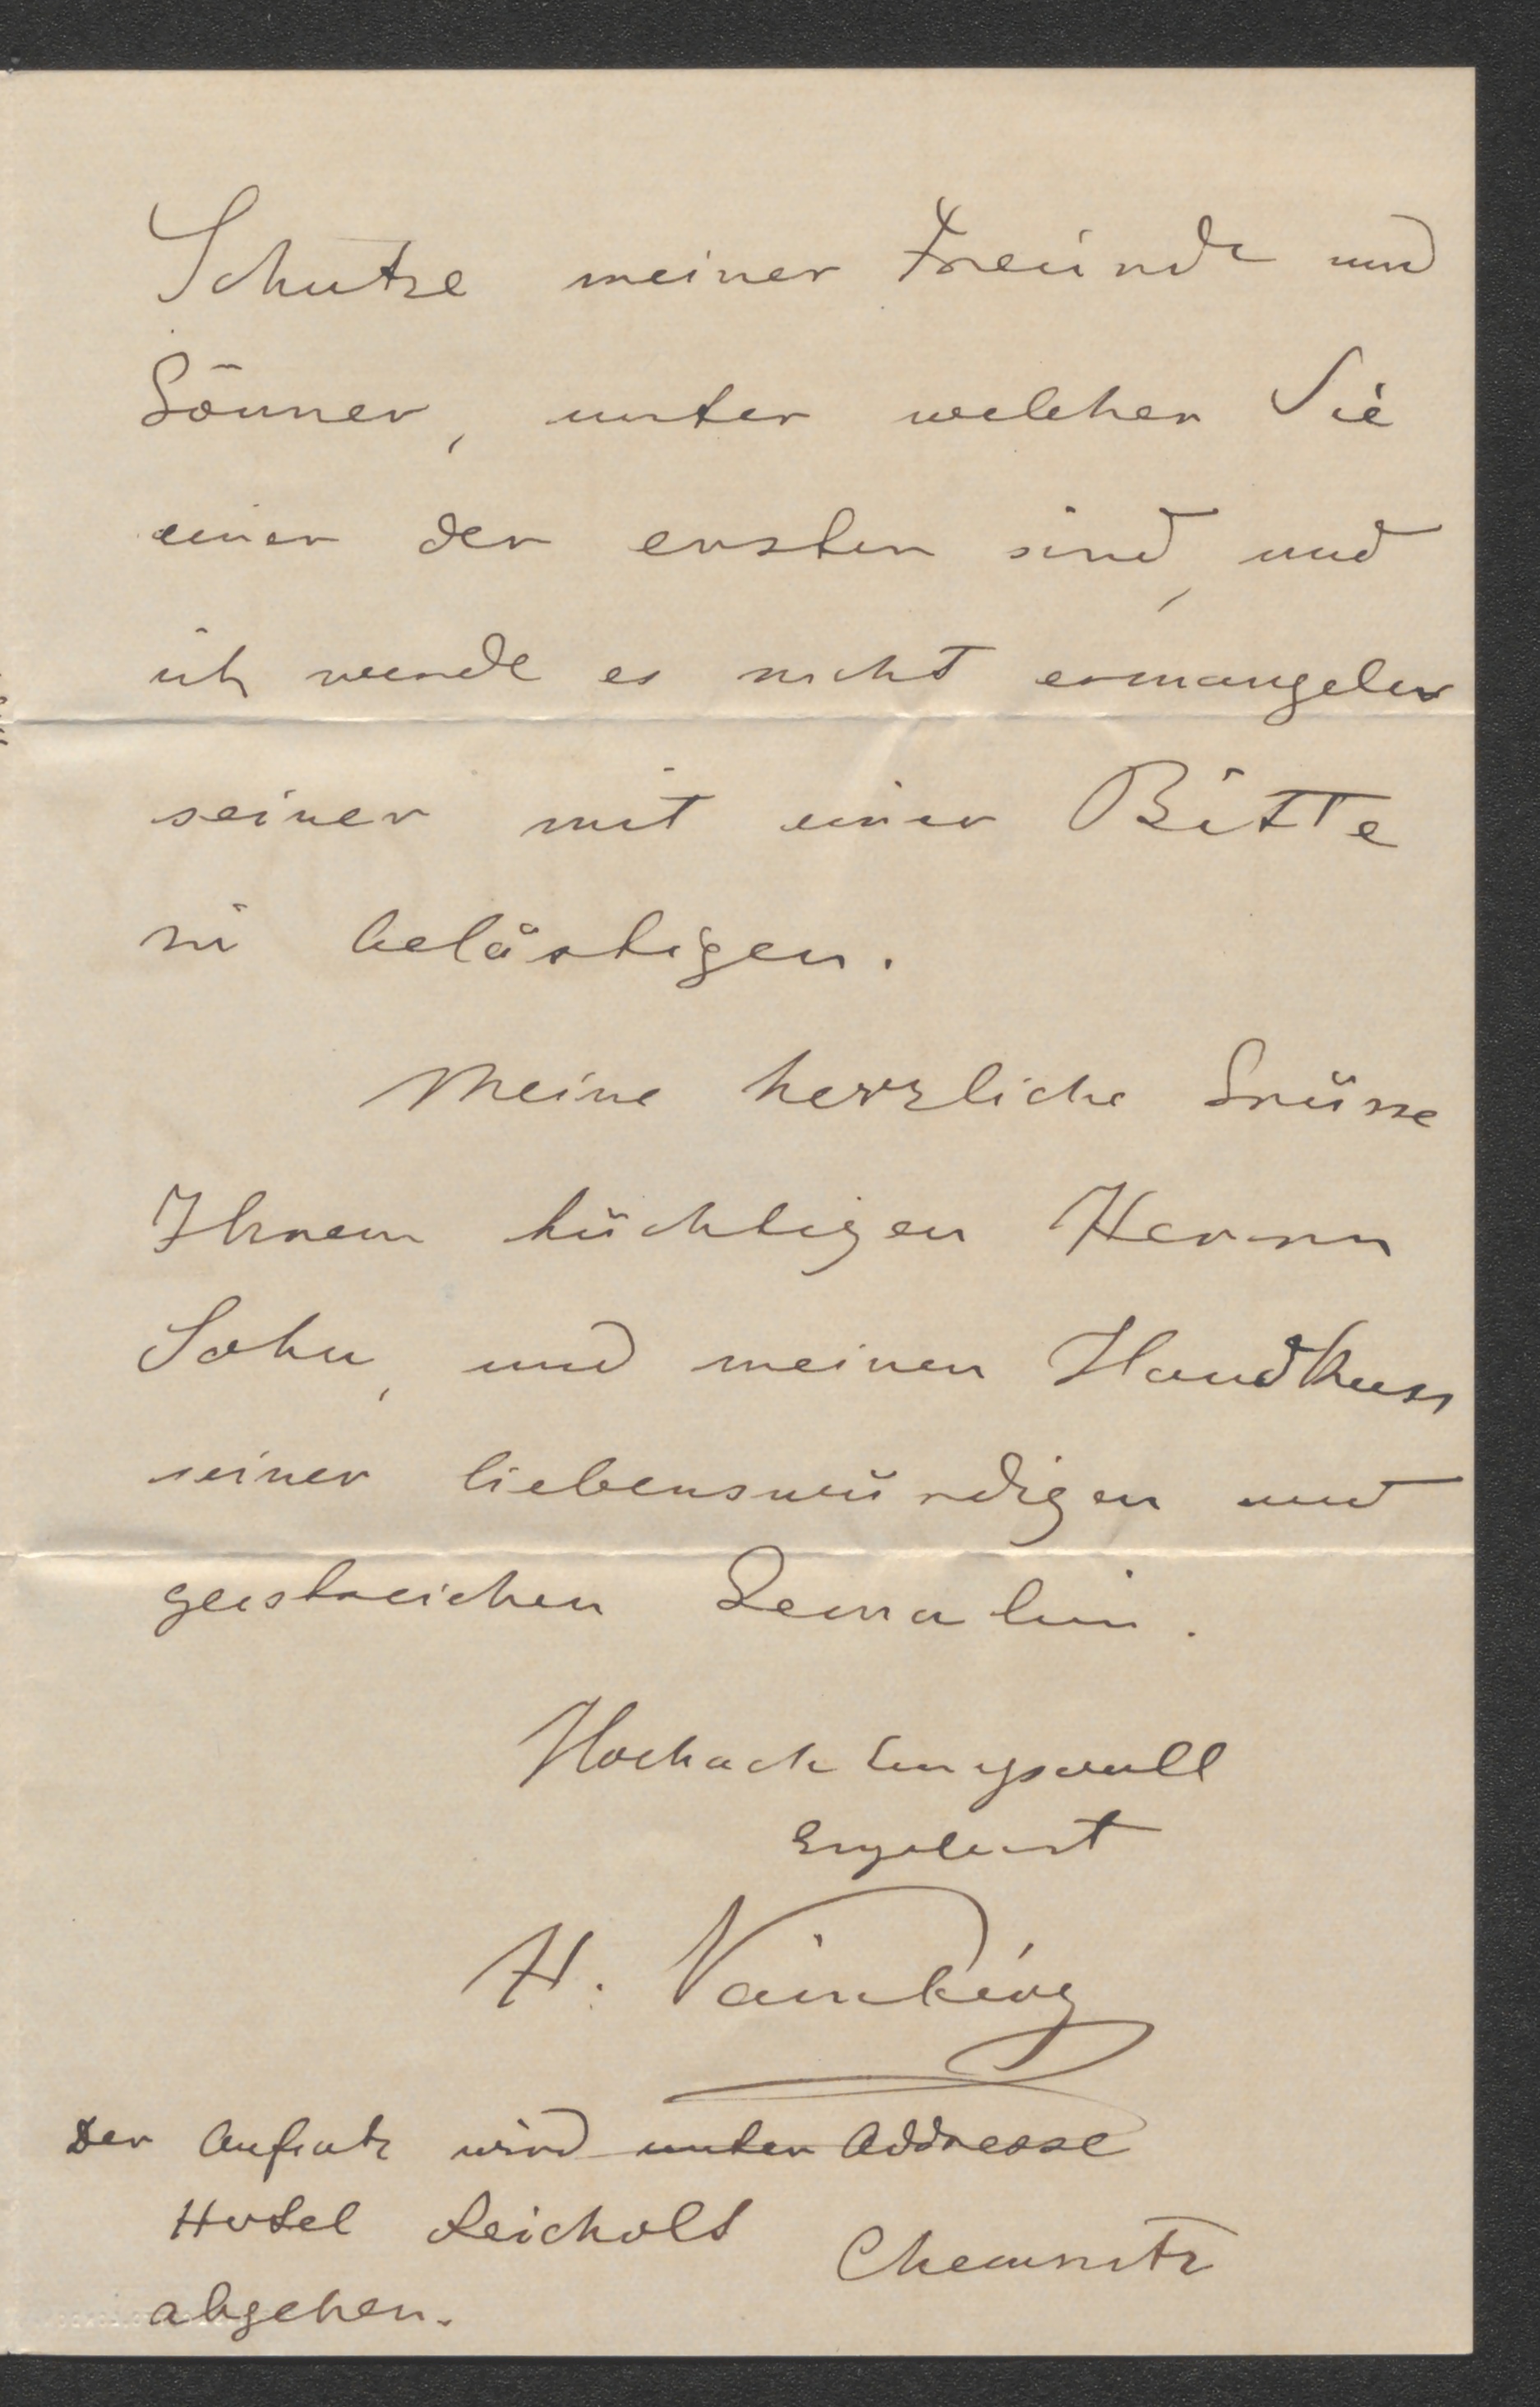 Schutze meiner Freunde und
Gönner, unter welchen Sie
einer der ersten sind, und
ich werde es nicht ermangeln
seiner mit einer Bitte
zu belästigen.
Meine herzliche Grüsse
Ihrem tüchtigen Herrn
Sohn, und meinen Handkuss
seiner liebenswürdigen und
geistreichen Gemalin.
Hochachtungsvoll
Ergebenst
H. Vámbéry
Der Aufsatz wird unter Addresse
Hotel Reichold Chemnitz
abgehen.